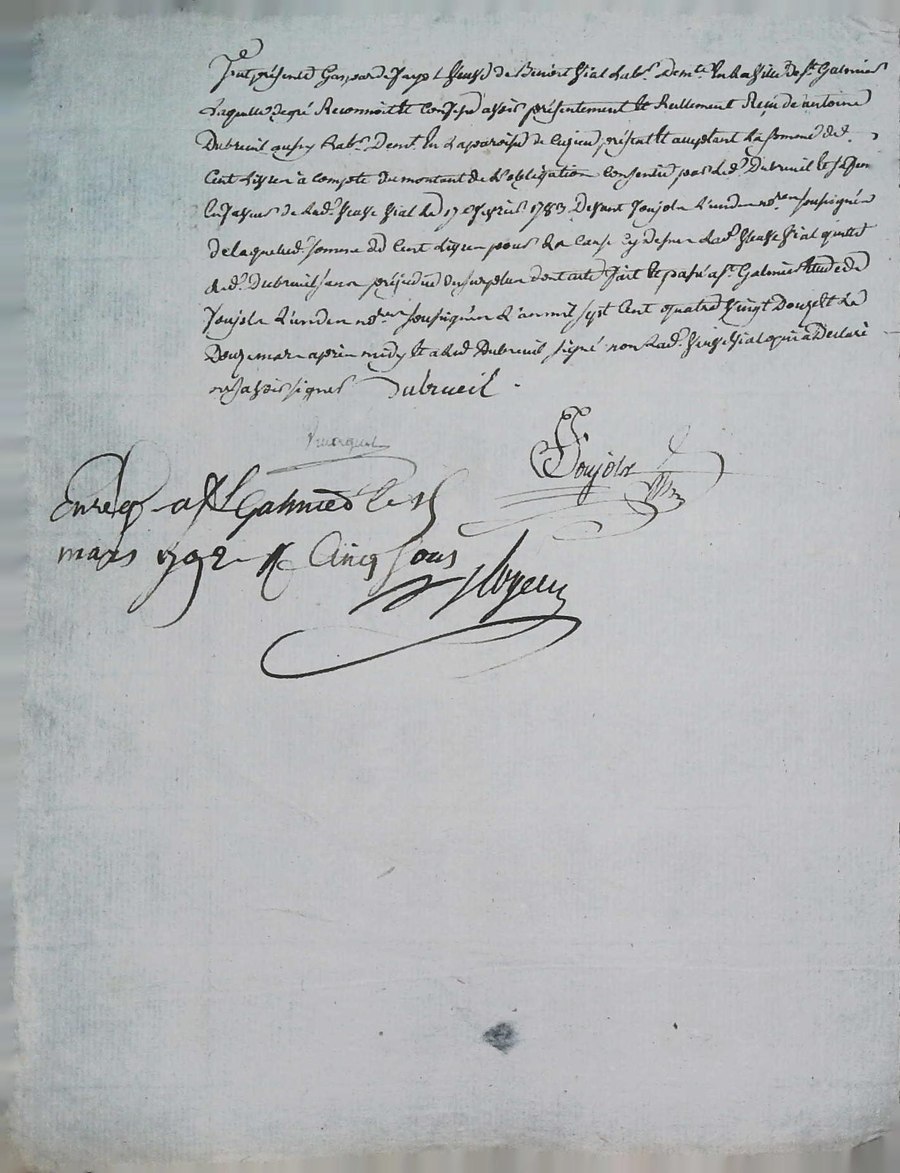 fut présente Gasparde Jayol veuve de Benoit Vial Labr. demte en la ville de st Galmier
Laquelle de gré Reconnoit et confesse avoir présentement et Réellement Reçu de antoine
Dubreuil aussy Labr. demt en la paroisse de présent et acceptant la somme de
Cent Livres a compte du montant de L'obligation consentie par led. Dubreuil
en faveur de lad. veuve Vial le 17 1783 devant Joujole L'un des notres soussignés
de laquelle somme de Cent Livres pour la cause cy dessus lad. veuve Vial quitte
led. Dubreuil sans préjudice du surplus dont acte fait et passé a st Galmier Etude de
Joujole L'un des notres soussignés L'an mil sept Cent quatre vingt Douze et le
Douze mars après midy et a led. Dubreuil signé non lad. veuve Vial qui a Declaré
ne savoir signer Dubrueil
Joujole
Enreg. a st Galmier le
mars 1792 R Cinq sous